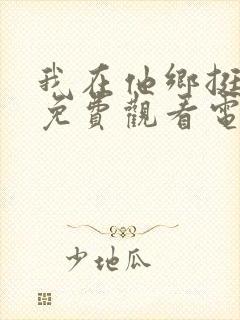 我在他鄉挺
免費觀看電
少地瓜